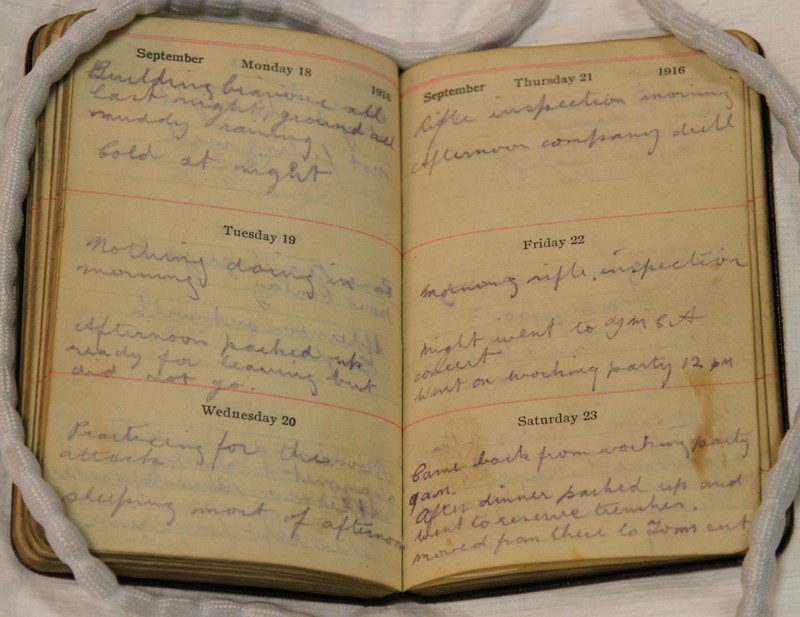 September Monday 18 1916
Building bivouc all
last night, ground all
muddy raining
Cold at night
Tuesday 19
Nothing doing in
morning
Afternoon packed up
ready for leaving but
did not go.
Wednesday 20
Practicing for the
attack.
sleeping most of afternoon
September Thursday 21 1916
Rifle inspection morning
Afternoon company drill
Friday 22
Morning rifle inspection
Night went to YMCA
concert
Went on working party 12 pm
Saturday 23
Came back from working party
9 am.
After dinner packed up and
went to reserve trenches.
moved from there to Toms cut